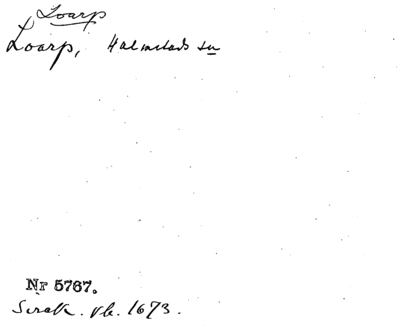 Loarp
Loarp, Halmstads sn
Nr 5767.
vb. 1673.